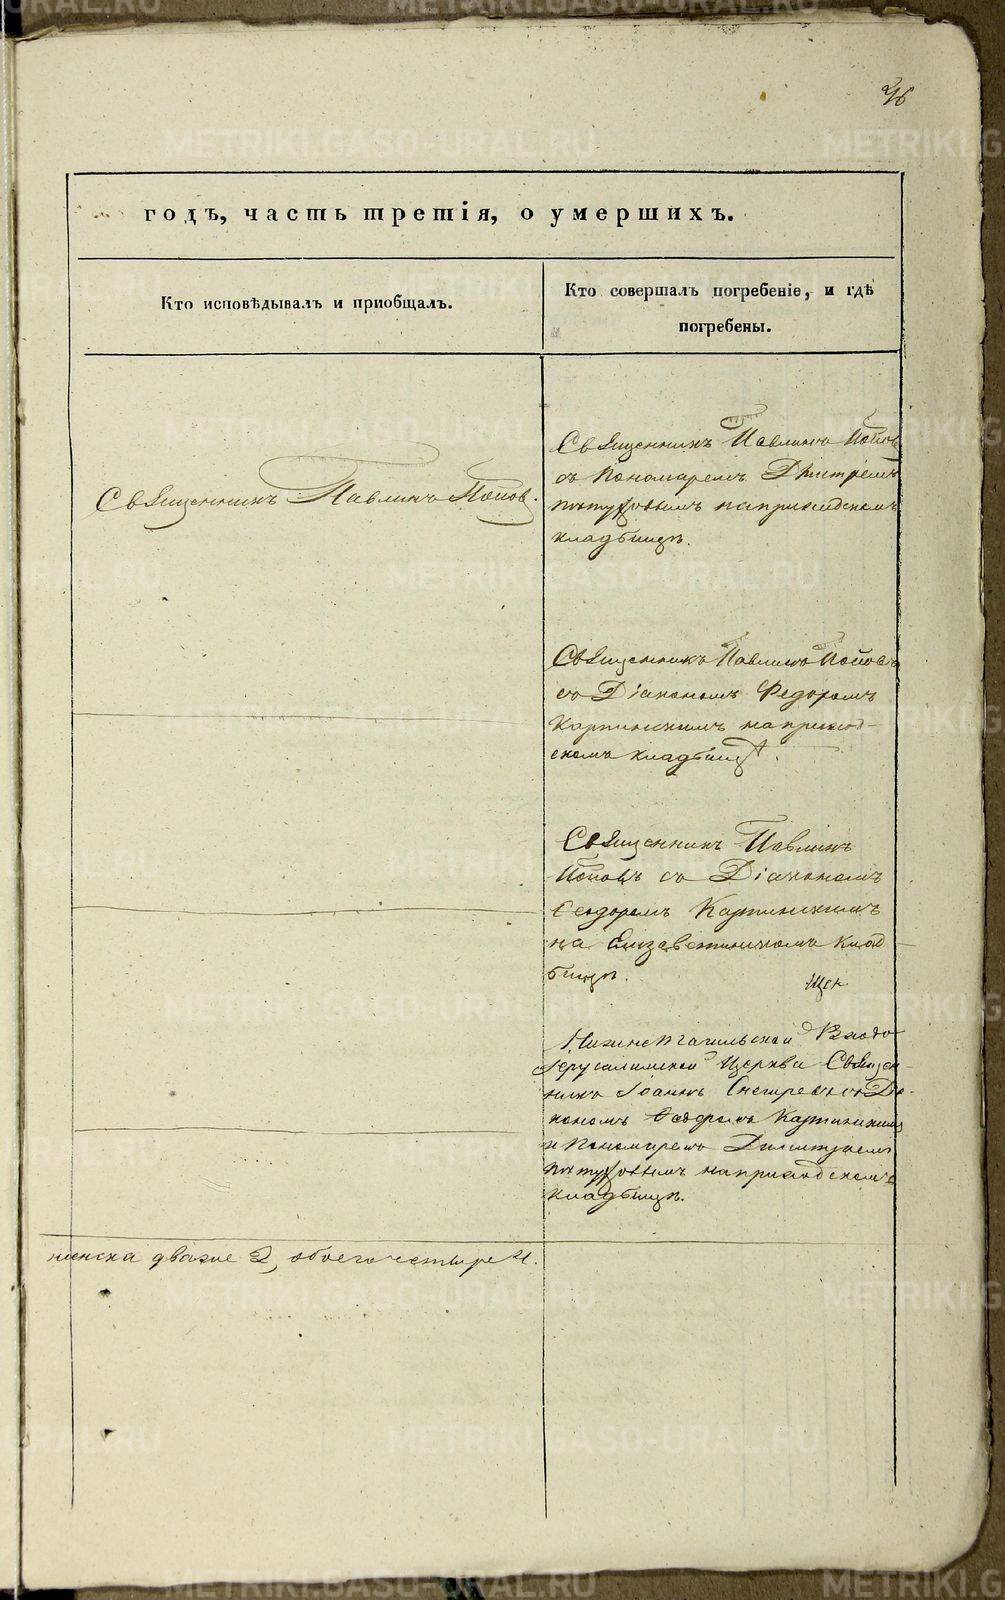 годъ, часть третія, о умершихъ.
Кто исповѣдывалъ и пріобщалъ.
Кто совершалъ погребеніе, и гдѣ
погребены.
Священникъ Павлинъ Поповъ.
Священникъ Павлинъ Попов
съ Пономаремъ Дмитріемъ
наприходскомъ
кладбищѣ.
Священникъ Павлинъ Поповъ
со Діакономъ Федоромъ
Карпинскимъ наприход-
скомъ кладбищѣ.
Священникъ Павлинъ
Поповъ со Діакономъ
Феодоромъ Карпинскимъ
на Елизаветинскомъ клад-
бищѣ.
Нижнетагильской Входо
Іерусалимской Церкви Священ-
никъ Іоаннъ со Діа-
кономъ Феодромъ Карпинскимъ
и Пономаремъ Димитріемъ
наприходскомъ
кладбищѣ.
женска двазое 2, обоего четыре 4.
METRIKI.GASO-URAL.RU